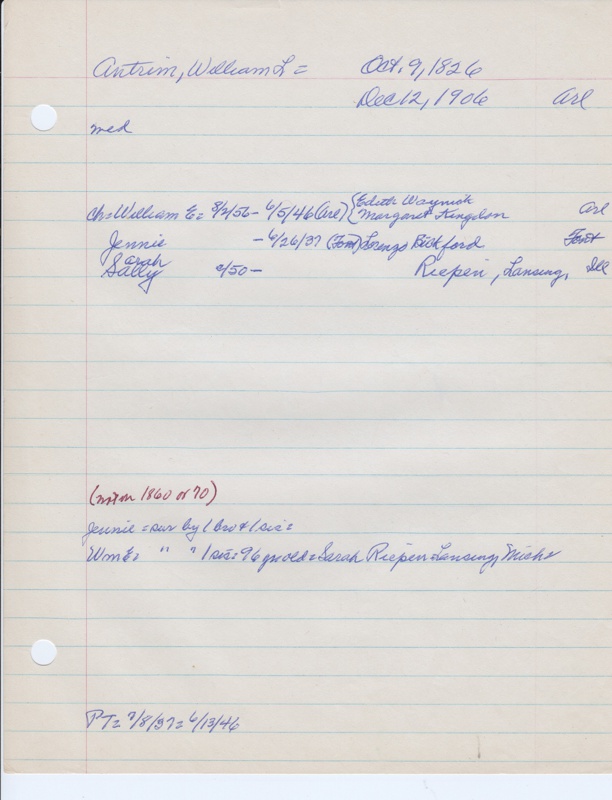 Antrim, William L = Oct. 9, 1826
Dec 12, 1906 Arl
med
ch = William E = 8/2/56 - 6/5/46 (Arl) { Edith Waymick Arl
Margaret Kingdon
Jennie - 6/26/37 (Font) Lorenzo Bickford Font
Sarah
Sally c/50 - Riepen, Lansing, Ill
(not on 1860 or 70)
Jennie = sur by 1 bro & 1 sis =
Wm E = " " 1 sis = 96 yrs old = Sarah Riepen = Lansing, Mich =
PT = 7/8/37 = 6/13/46